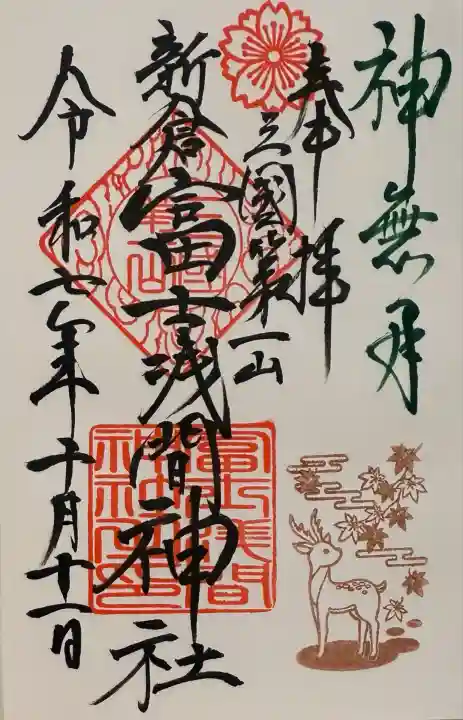 神無月
奉拝
三國第一山
新倉富士浅間神社
令和七年十月十一日
冨士浅間
神社之印